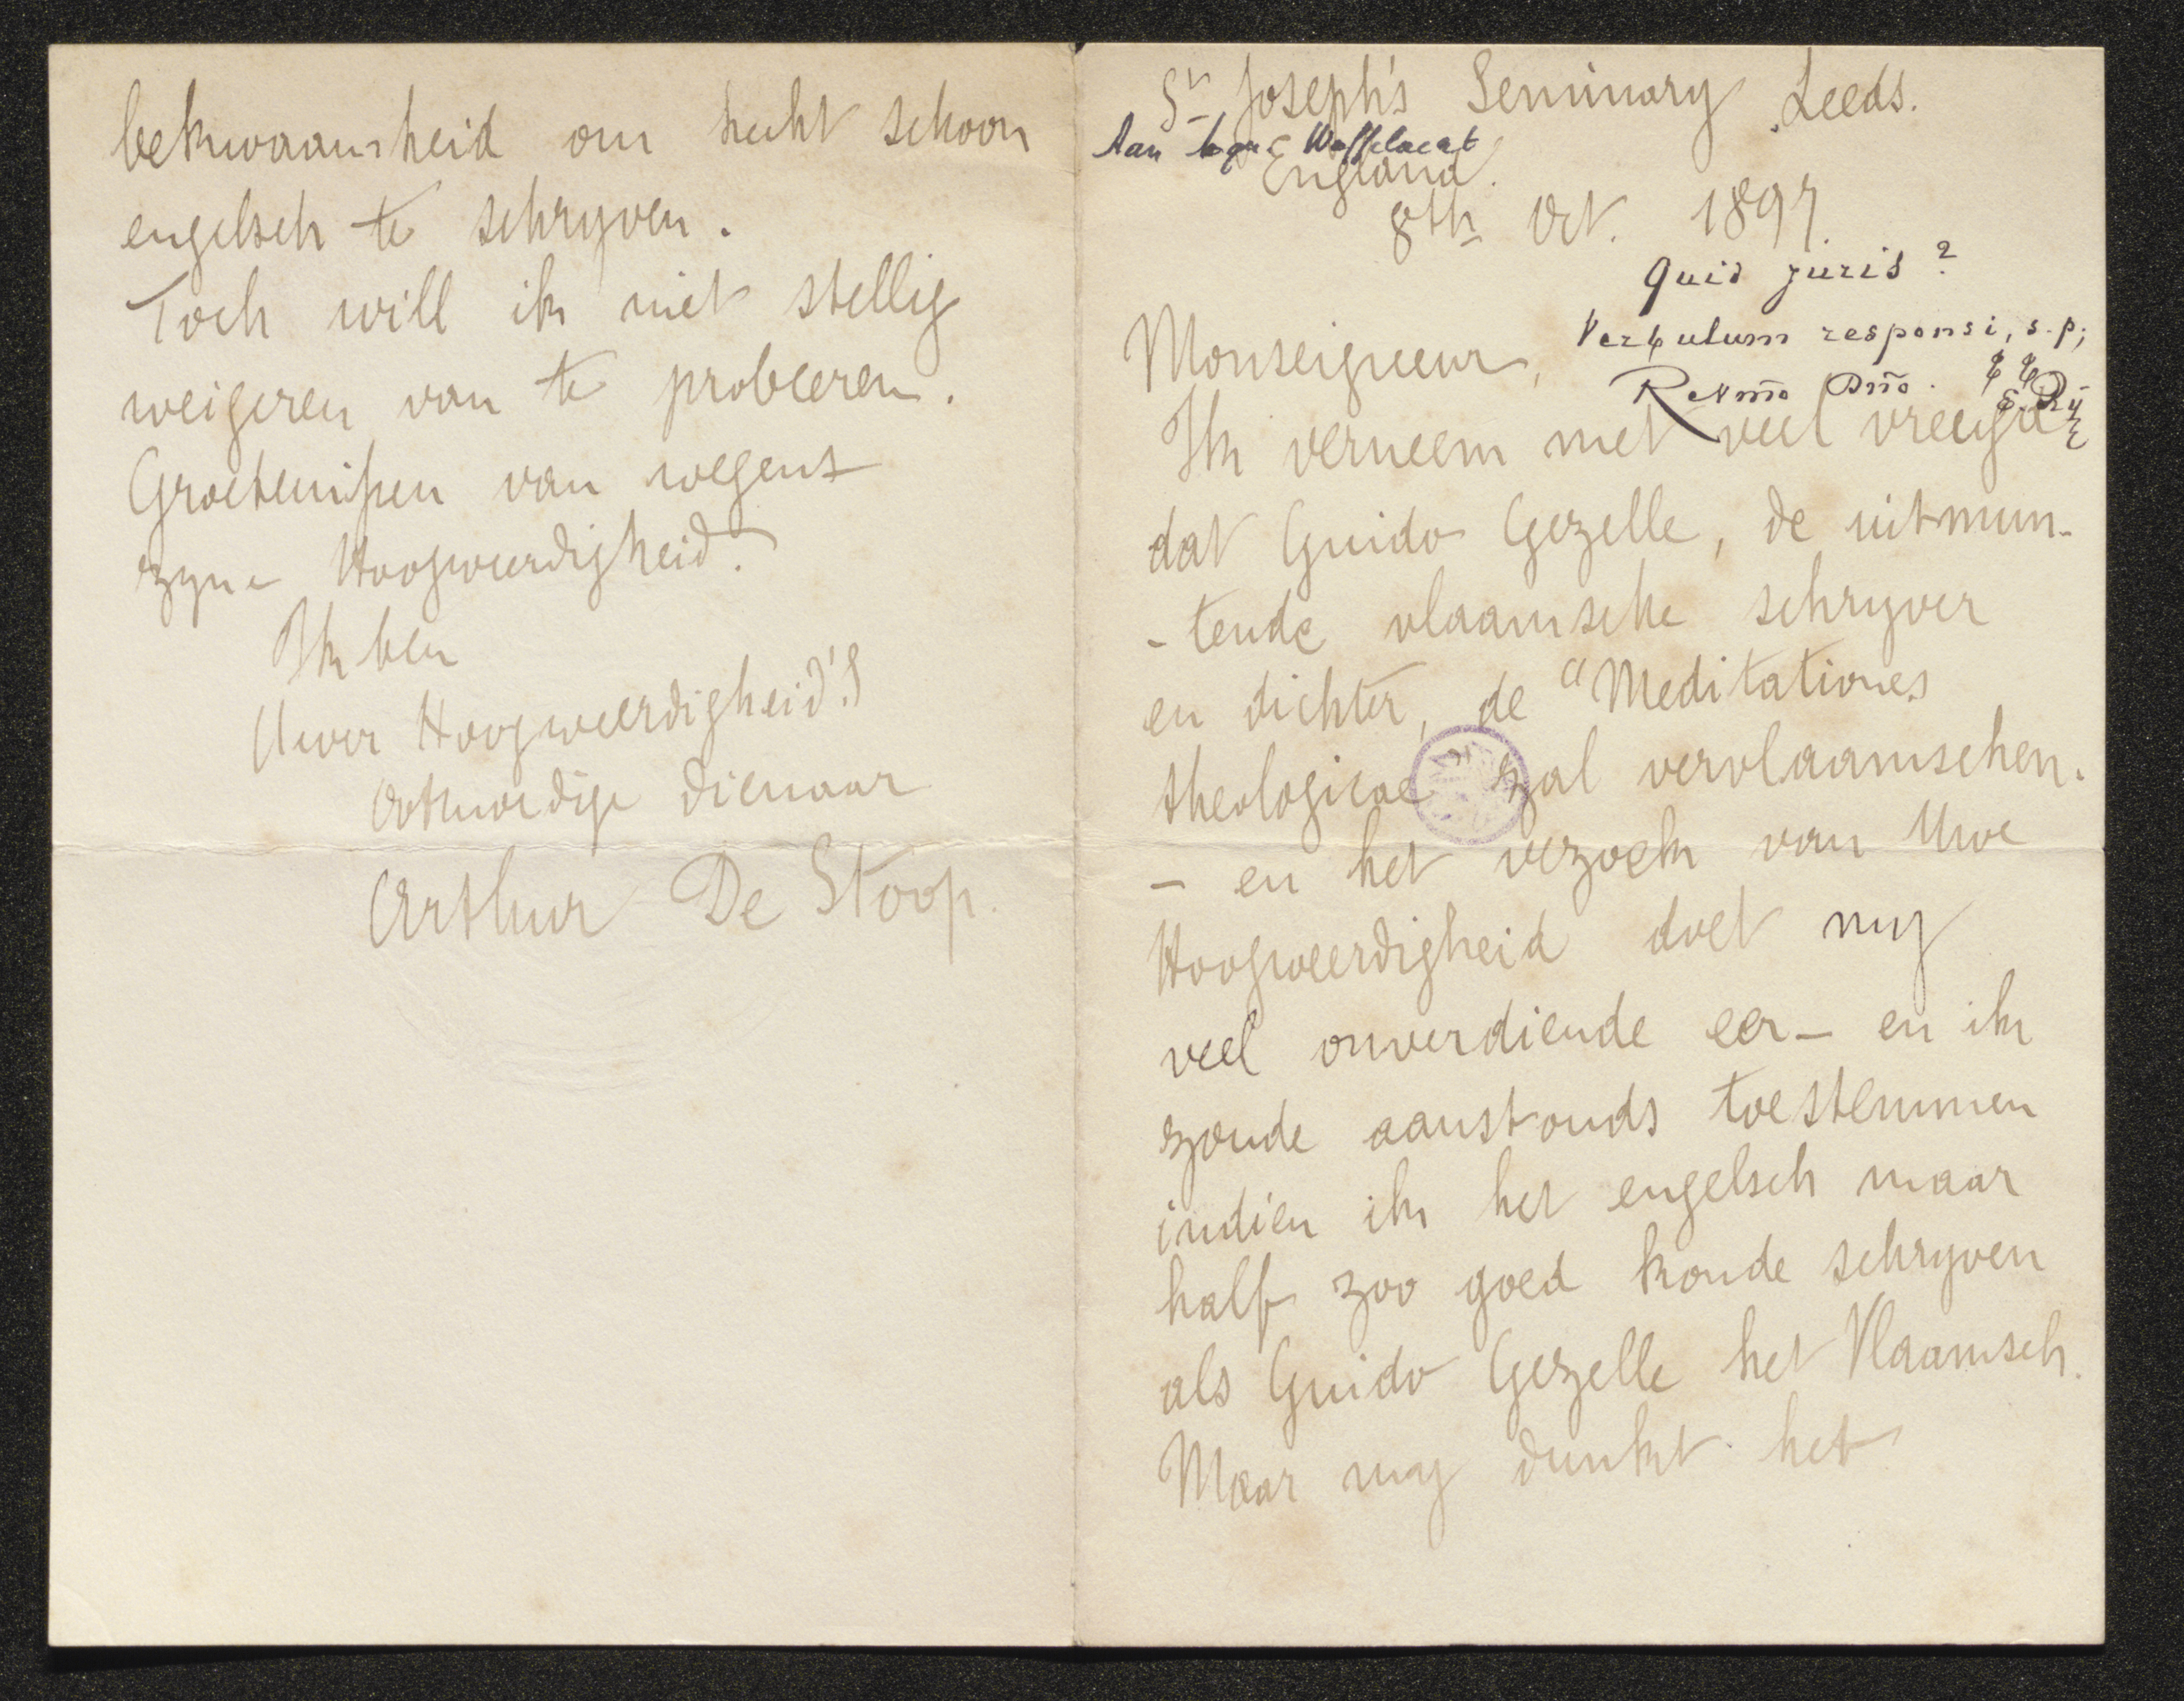 St Joseph's Seminary Leeds.
Aan Mgr Waffelaert
England.
8th Oct. 1897.
Quid juris?
Verbulum responsi, s.p.;
Revmo Dno.
Monseigneur,
Ik verneem met veel vreugd
dat Guido Gezelle, de uitmun-
-tende vlaamsche schryver
en dichter, de "Meditationes
theologicae" zal vervlaamschen.
- en het verzoek van Uwe
Hoogweerdigheid doet my
veel onverdiende eer - en ik
zoude aanstonds toestemmen
indien ik het engelsch maar
half zoo goed konde schryven
als Guido Gezelle het Vlaamsch.
Maar my dunkt het
bekwaamheid om hecht schoon
engelsch te schryven.
Toch will ik niet stellig
weigeren van te probeeren.
Groetenissen van wegens
zyne Hoogweerdigheid.
Ik ben
Uwer Hoogweerdigheid's
Ootmoedige dienaar
Arthur De Stoop.